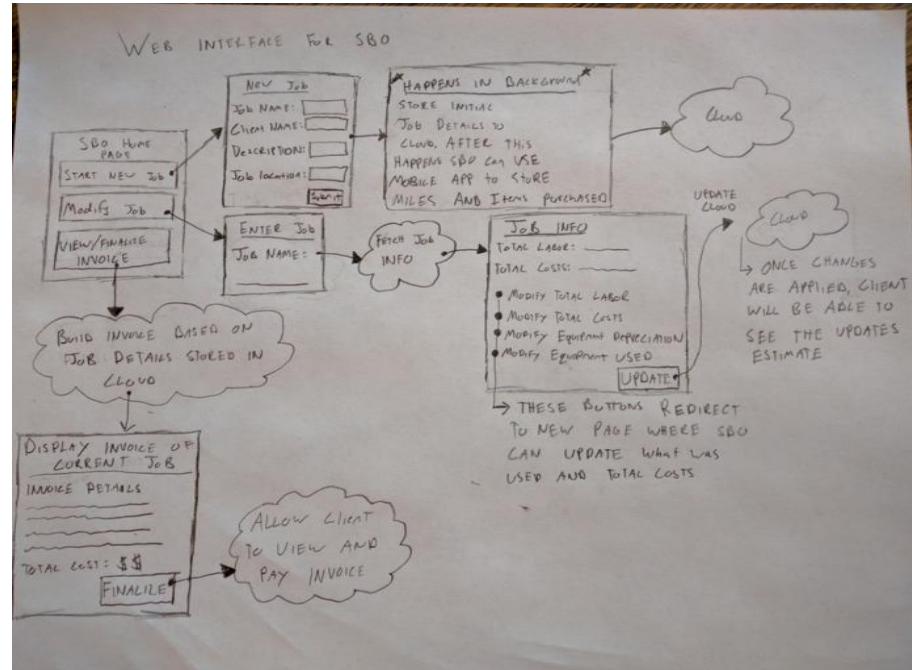 WEB INTERFACE FOR SBO
SBO HOME
PAGE
START NEW JOB
Modify Job
VIEW/FINALIZE
INVOICE
NEW JOB
Job NAME:
Client NAME:
DESCRIPTION:
Job location:
Submit
HAPPENS IN BACKGROUND
STORE INITIAL
JOB DETAILS TO
CLOUD, AFTER THIS
HAPPENS SBO Can USE
MOBILE APP TO STORE
MILES AND Items PURCHASED
Cloud
ENTER Job
JOB NAME:
FETCH JOB
INFO
JOB INFO
TOTAL LABOR:
TOTAL COSTS:
MODIFY TOTAL LABOR
MODIFY TOTAL COSTS
MODIFY EQUIPMENT DEPRECIATION
MODIFY EQUIPMENT USED
UPDATE
UPDATE
CLOUD
CLOUD
ONCE CHANGES
ARE APPLIED, CLIENT
WILL BE ABLE TO
SEE THE UPDATES
ESTIMATE
THESE BUTTONS REDIRECT
TO NEW PAGE WHERE SBO
CAN UPDATE What was
USED AND TOTAL COSTS
BUILD INVOICE BASED ON
JOB DETAILS STORED IN
CLOUD
DISPLAY INVOICE OF
CURRENT JOB
INVOICE DETAILS
TOTAL COST: $$
FINALIZE
ALLOW Client
TO VIEW AND
PAY INVOICE